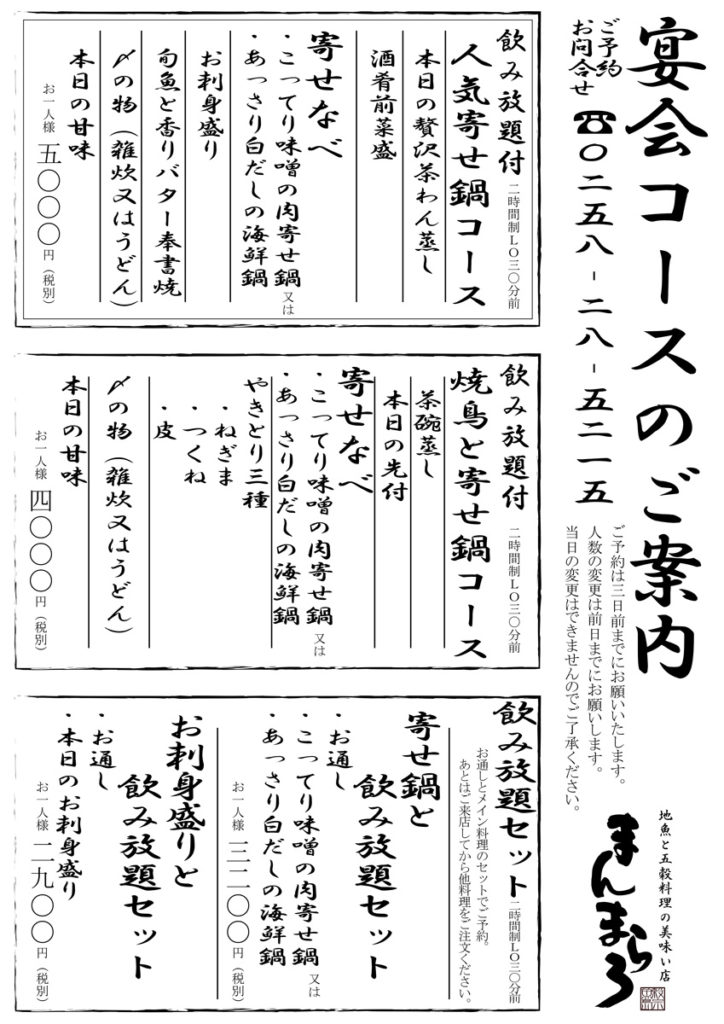 宴会コースのご案内
ご予約
お問合せ
☎〇二五八-二八-五二一五
ご予約は三日前までにお願いいたします。
人数の変更は前日までにお願いします。
当日の変更はできませんのでご了承ください。
地魚と五穀料理の美味い店
まんまらろ
飲み放題付 二時間制LO三〇分前
人気寄せ鍋コース
本日の贅沢茶わん蒸し
酒肴前菜盛
寄せなべ
・こってり味噌の肉寄せ鍋 又は
・あっさり白だしの海鮮鍋
お刺身盛り
旬魚と香りバター奉書焼
〆の物（雑炊又はうどん）
本日の甘味
お一人様 五〇〇〇円（税別）
飲み放題付 二時間制LO三〇分前
焼鳥と寄せ鍋コース
茶碗蒸し
本日の先付
寄せなべ
・こってり味噌の肉寄せ鍋 又は
・あっさり白だしの海鮮鍋
やきとり三種
・ねぎま
・つくね
・皮
〆の物（雑炊又はうどん）
本日の甘味
お一人様 四〇〇〇円（税別）
飲み放題セット 二時間制LO三〇分前
お通しとメイン料理のセットでご予約。
あとはご来店してから他料理をご注文ください。
寄せ鍋と
飲み放題セット
・お通し
・こってり味噌の肉寄せ鍋 又は
・あっさり白だしの海鮮鍋
お一人様 三二〇〇円（税別）
お刺身盛りと
飲み放題セット
・お通し
・本日のお刺身盛り
お一人様 二九〇〇円（税別）